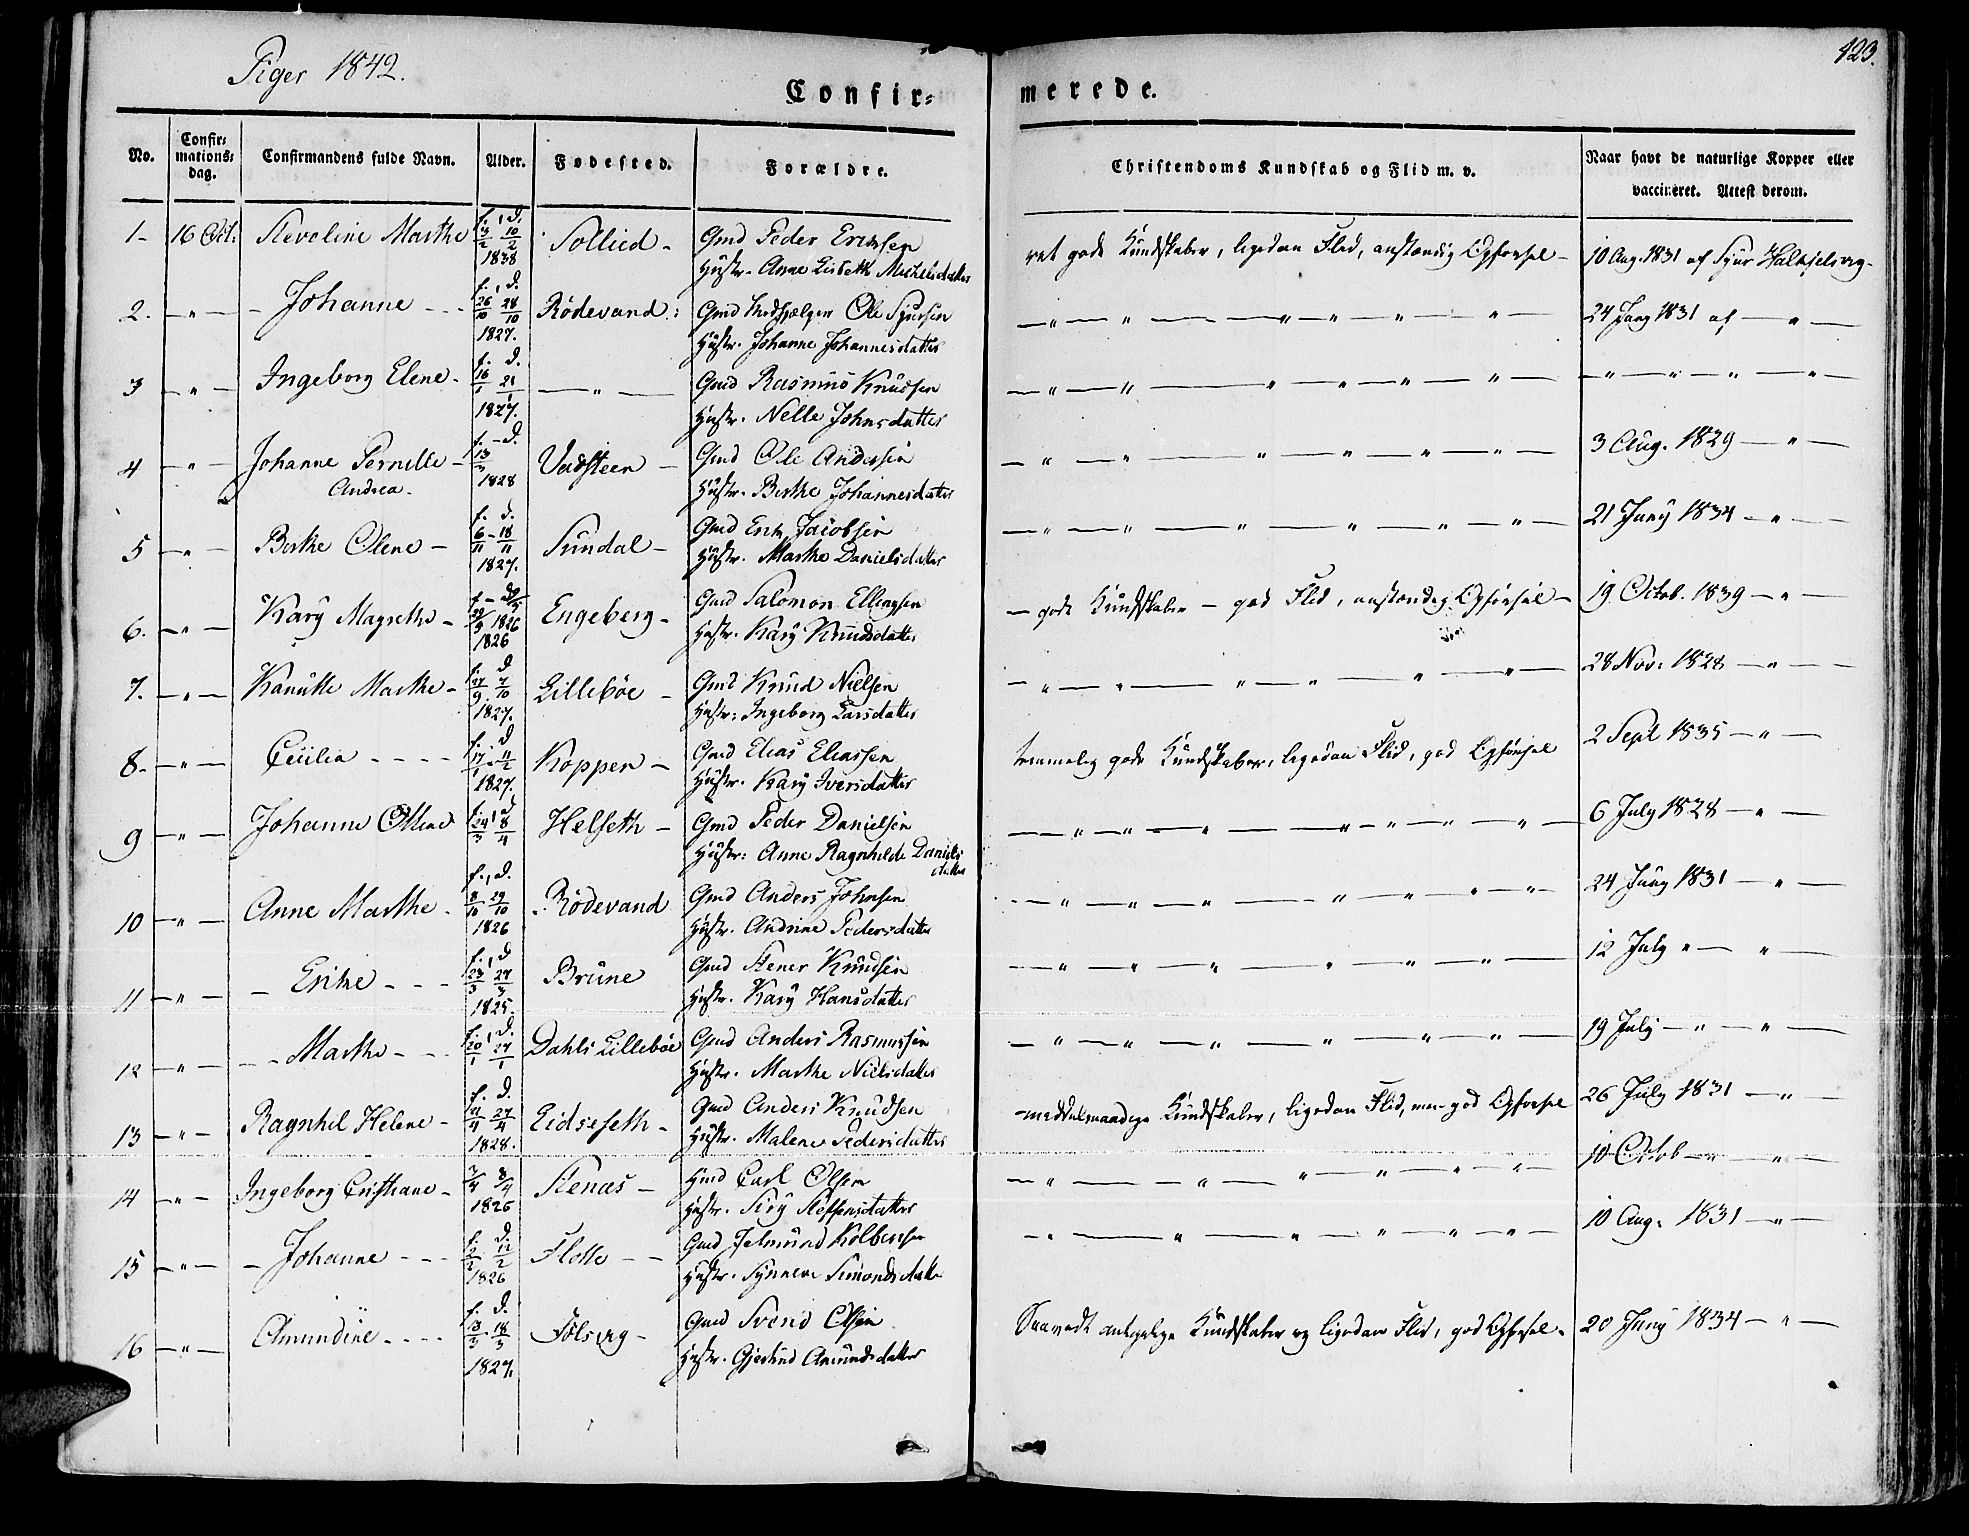 Piger 1842.
123.
Confir-
merede.
No.
Confir-
mations-
dag.
Confirmandens fulde Navn.
Alder.
Fødested.
Forældre.
Christendoms Kundskab og Flid m. v.
Naar havt de naturlige Kopper eller
vaccineret. Attest derom.
1- 16 Oct. Steveline Marthe f. 3/2 d. 10/2 1838 Sollied - Gmd Peder Ericksen
Hustr. Anne Lisbeth Michelsdatter
ret gode Kundskaber, ligedan Flid, anstændig Opførsel - 10 Aug. 1831 af Sjur Halkjelsvig -
2. - " - - Johanne - - - f. 26/10 d. 28/10 1827. Rödevand: Gmd Ole Sjursen
Hustr. Johanne Johannesdatter
- " - " - " - " - " - " - 24 Jany 1831 af - " -
3 - " - Ingeborg Elene - f. 16/1 d. 21/1 1827. - " - Gmd Rasmus Knudsen
Hustr. Nelle Johnsdatter
- " - " - " - " - " - " - - " - " - " - " -
4 - " - Johanne Pernille - f. 13/3 - d. 1828 Vadsteen - Gmd Ole Andersen
Andrea.
Hustr. Berthe Johannesdatter
- " - " - " - " - " - " - 3 Aug. 1829 - " -
5 - " - Berthe Olene - f. 6/11 - d. 18/11 1827. Sundal - Gmd Erik Jacobsen
Hustr. Marthe Danielsdatter
- " - " - " - " - " - " - 21 Jany 1834 - " -
6. - " - Kary Magrethe - 1826 1826 Engeberg - Gmd Salomon Ellingsen
Hustr. Kary Knudsdatter
- gode Kundskaber - god Flid, anstændig Opførsel - 19 Octob. 1839 - " -
7. - " - Kanutte Marthe - f. 27/9 d. 7/10 1827. Lillebøe - Gmd Knud Nielsen
Hustr: Ingeborg Larsdatter
- " - " - " - " - " - " - 28 Nov: 1828 - " -
8. - " - Cecilia - - - - f. 17/1 - d. 11/2 1827. Koppen - Gmd Elias Eliassen
Hustr. Kary Iversdatter
temmelig gode Kundskaber, ligedan Flid, god Opførsel 2 Sept 1835 - " -
9 - " - Johanne Oline f. 24/3 d. 8/4 Helseth - Gmd Peder Danielsen
Hustr: Anne Ragnhilde Daniels
datter
- " - " - " - " - " - " - 6 July 1828 - " -
10 - " - Anne Marthe - f. 8/10 d. 29/10 1826 Rödevand Gmd Anders Johnsen
Hustr. Andrine Pedersdatter
- " - " - " - " - " - " - 24 Juny 1831 - " -
11 - " - - Erikke - - - f. 23/3 d. 27/3 1825. Brune Gmd Stener Knudsen
Hustr. Kary Hansdatter
- " - " - " - " - " - " - 12 July " - " -
12 - " - - Marthe - - - f. 20/1 d. 27/1 Dahls Lillebøe Gmd Anders Rasmussen
Hustr. Marthe Nielsdatter
- " - " - " - " - " - " - 19 July - " - " -
13 - " - Ragnhil Helene - f. 21/4 d. 27/4 1828. Eidseseth - Gmd Anders Knudsen
Hustr. Malene Pedersdatter
- middelmaadige Kundskaber, ligedan Flid, men god Opførsel 26 July 1831 - " -
14 - " - Ingeborg Cristhane - 7/4 8/4 1826 Stenas - Hmd Carl Olsen
Hustr. Siry Steffensdatter
- " - " - " - " - " - " - 10 Octob - " - " -
15 - " - - Johanne - - - f. 2/2 d. 12/2 1826 Flotte - - Gmd Jetmund Kolbensen
Hustr. Synneve Simondsdatter
- " - " - " - " - " - " - 10 Aug. 1831 - " -
16 - " - Amundine - - - - f. 13/3 - d. 18/3 1827. Fölsvig - Gmd Svend Olsen
Hustr. Gjertrud Amundsdatter
Saavidt antagelige Kundskaber og ligedan Flid, god Opførsel. 20 Juny 1834 - " -